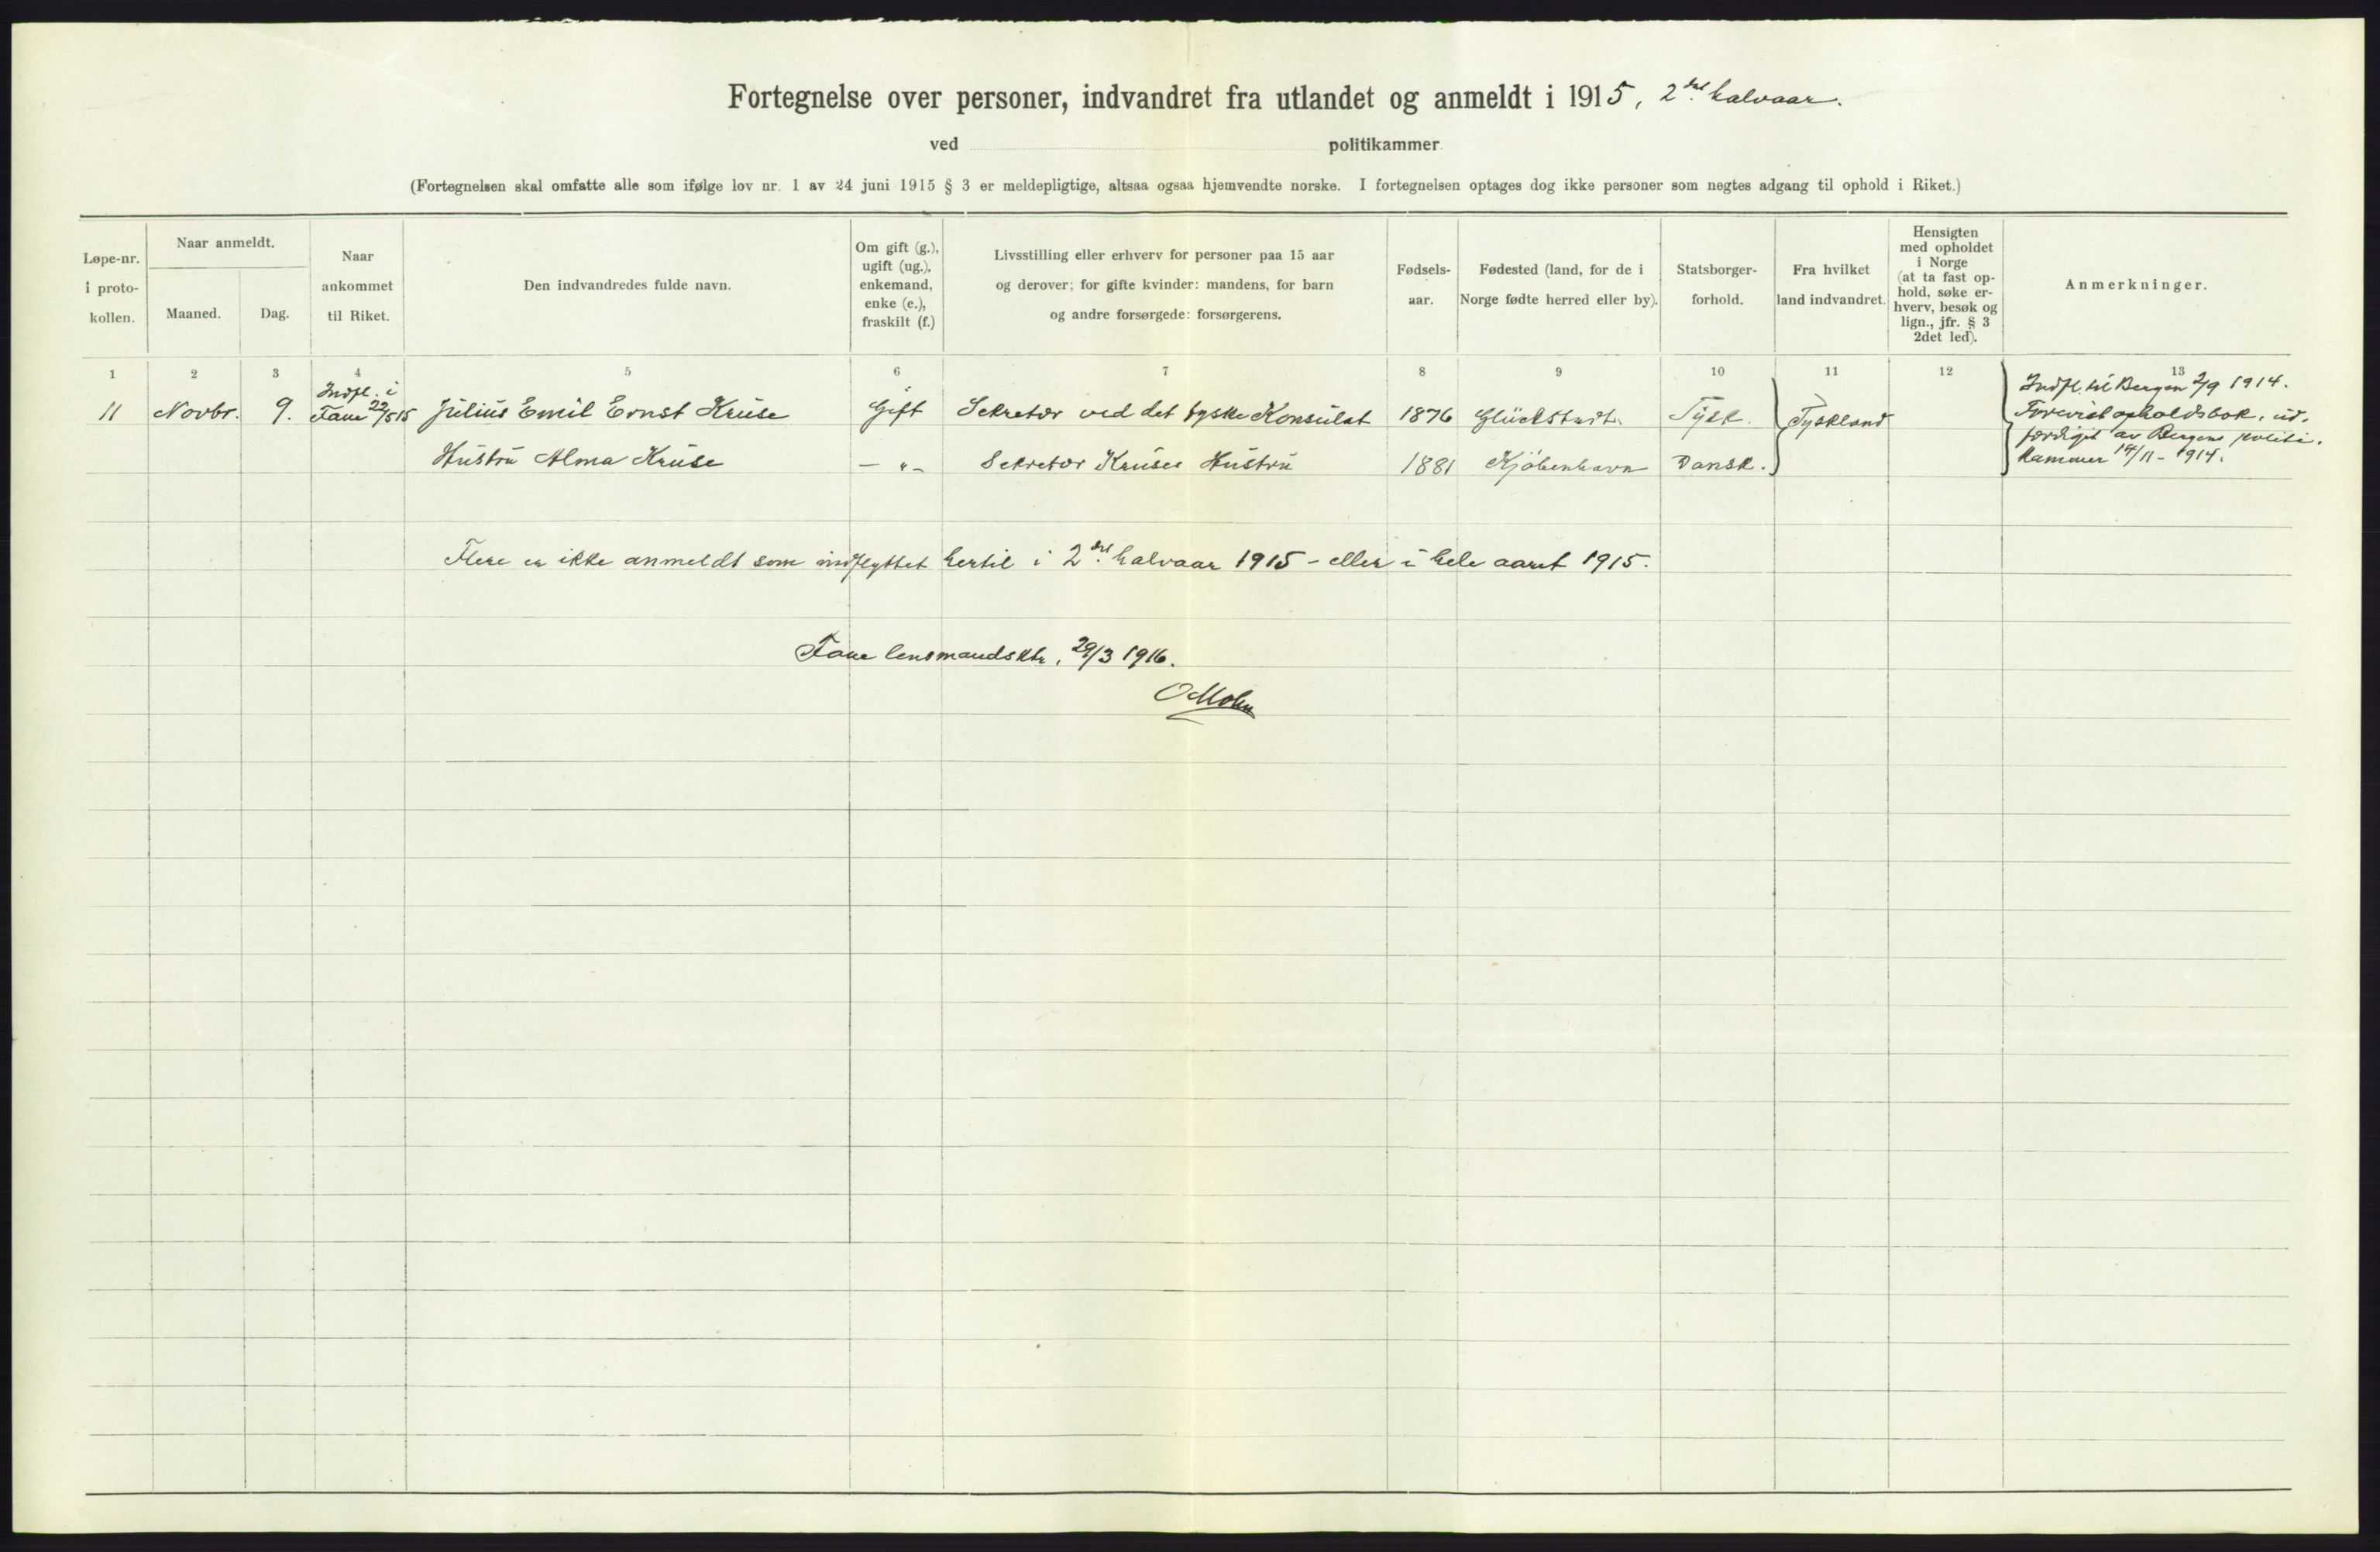 Fortegnelse over personer, indvandret fra utlandet og anmeldt i 1915, 2det halvaar.
ved politikammer
(Fortegnelsen skal omfatte alle som ifølge lov nr. 1 av 24 juni 1915 § 3 er meldepligtige, altsaa ogsaa hjemvendte norske. I fortegnelsen optages dog ikke personer som negtes adgang til ophold i Riket.)
Løpe-nr.
i proto-
kollen.
Naar anmeldt.
Maaned.
Dag.
Naar
ankommet
til Riket.
Den indvandredes fulde navn.
Om gift (g.),
ugift (ug.),
enkemand,
enke (e.),
fraskilt (f.)
Livsstilling eller erhverv for personer paa 15 aar
og derover; for gifte kvinder: mandens, for barn
og andre forsørgede: forsørgerens.
Fødsels-
aar.
Fødested (land, for de i
Norge fødte herred eller by).
Statsborger-
forhold.
Fra hvilket
land indvandret.
Hensigten
med opholdet
i Norge
(at ta fast op-
hold, søke er-
hverv, besøk og
lign., jfr. § 3
2det led).
Anmerkninger.
1 2 3 4 5 6 7 8 9 10 11 12 13
11 Novbr. 9.
Indfl. i
Fane 22/5 15
Julius Emil Ernst Kruse Gift Sekretær ved det tyske Konsulat 1876 Glückstadt. Tysk. Tyskland
Hustru Alma Kruse — " — Sekretær Kruses Hustru 1881 Kjøbenhavn Dansk.
Indfl. til Bergen 2/9 1914.
Forevist opholdsbok, ud-
færdiget av Bergens politi-
kammer 14/11 - 1914.
Flere er ikke anmeldt som indflyttet hertil i 2det halvaar 1915 - eller i hele aaret 1915.
Fane lensmandsktr, 29/3 1916.
O Mohn